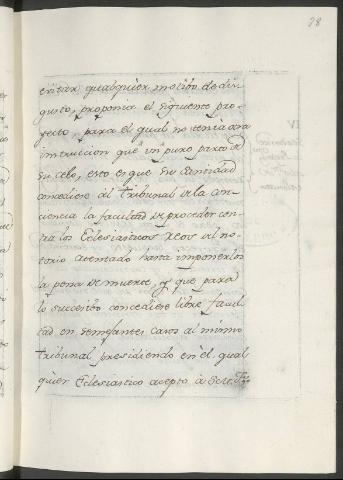 28
evitar qualquier motibo de dis-
gusto, proponia el siguiente pro-
yecto, para el qual no tenia otra
instruccion que un puro parto de
su celo, esto es que su Santidad
concediere al Tribunal de la Con-
ciencia la facultad de proceder con-
tra los Eclesiasticos Reos del no-
torio atentado hasta imponerlos
la pena de muerte, y que para
lo succesibo concediese libre facul-
tad en semejantes casos al mismo
Tribunal presidiendo en èl qual
quier Eclesiastico acepto à